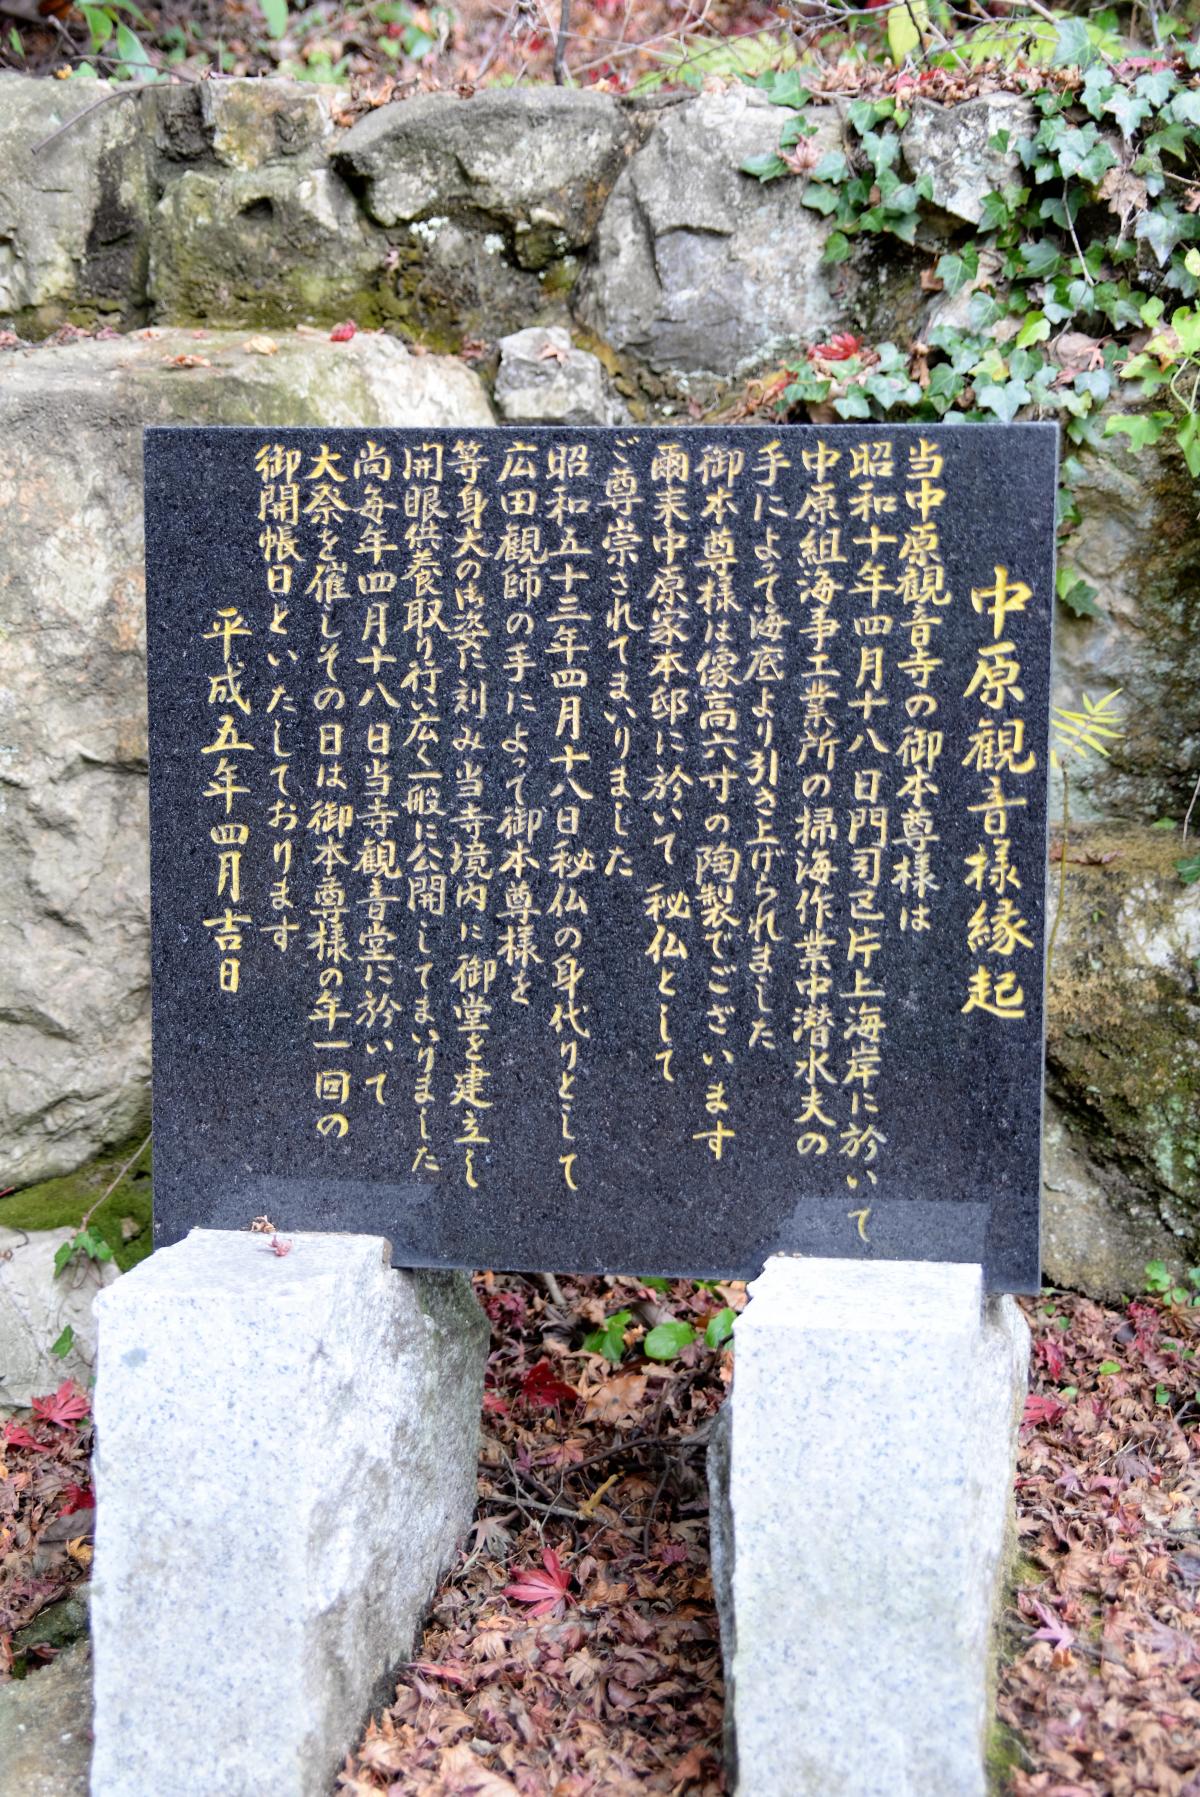 中原観音様縁起
当中原観音寺の御本尊様は
昭和十年四月十八日門司己片上海岸に於いて
中原組海事工業所の掃海作業中潜水夫の
手によって海底より引き上げられました
御本尊様は像高六寸の陶製でございます
爾来中原家本邸に於いて秘仏として
ご尊崇されてまいりました
昭和五十三年四月十八日秘仏の身代りとして
広田観師の手によって御本尊様を
等身大の御姿に刻み当寺境内に御堂を建立し
開眼供養取り行い広く一般に公開してまいりました
尚毎年四月十八日当寺観音堂に於いて
大祭を催しその日は御本尊様の年一回の
御開帳日といたしております
平成五年四月吉日